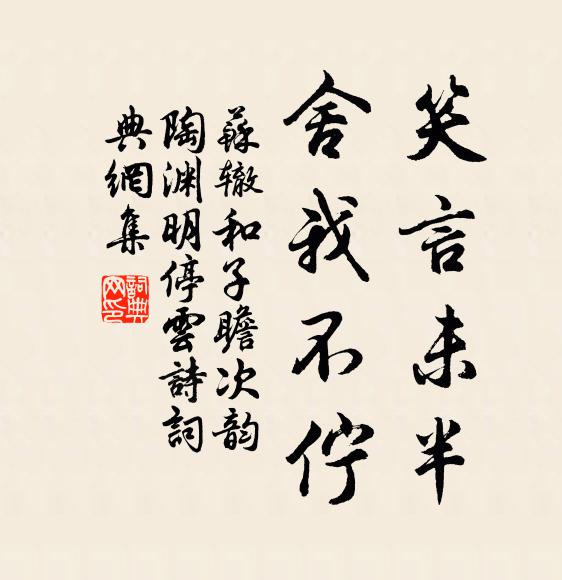 笑言未半
舍我不佇
蘇辙和子瞻次韵
陶渊明停雲詩詞
典網集
詞典
网印